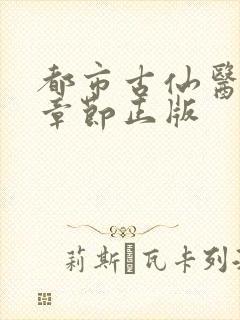 都市古仙醫
章節正版
莉斯·瓦卡列